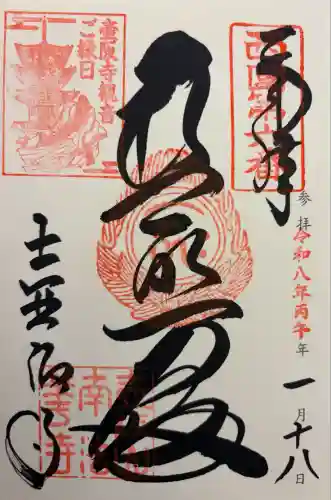 奉拝
西國第六番
参拝 令和八年丙午年 一月十八日
壷阪寺観音
ご縁日
壷阪寺
南法
華寺